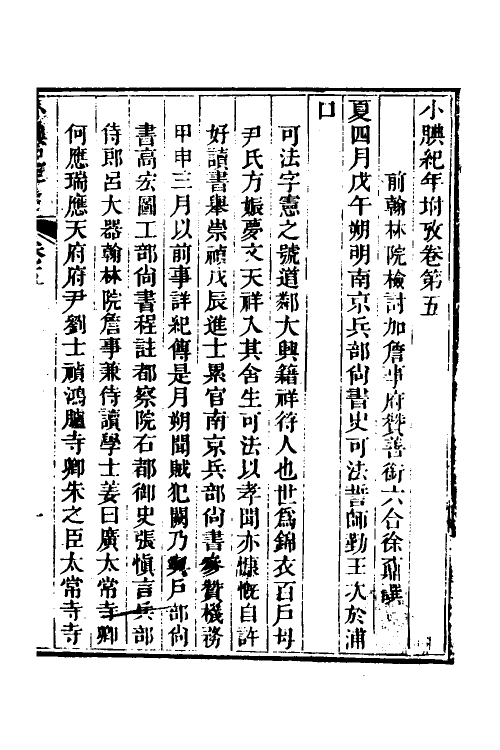 小腆紀年坿攷卷第五
前翰林院檢討加詹事府贊善銜六合徐鼒譔
夏四月戊午朔明南京兵部尚書史可法誓師勤王次於浦
口
可法字憲之號道鄰大興籍祥符人也世爲錦衣百戶母
尹氏方娠夢文天祥入其舍生可法以孝聞亦慷慨自許
好讀書舉崇禎戊辰進士累官南京兵部尚書參贊機務
甲申三月以前事詳紀傳是月朔聞賊犯闕乃與戶部尚
書高宏圖工部尚書程註都察院右都御史張愼言兵部
侍郎呂大器翰林院詹事兼侍讀學士姜曰廣太常寺卿
何應瑞應天府府尹劉士禎鴻臚寺卿朱之臣太常寺寺